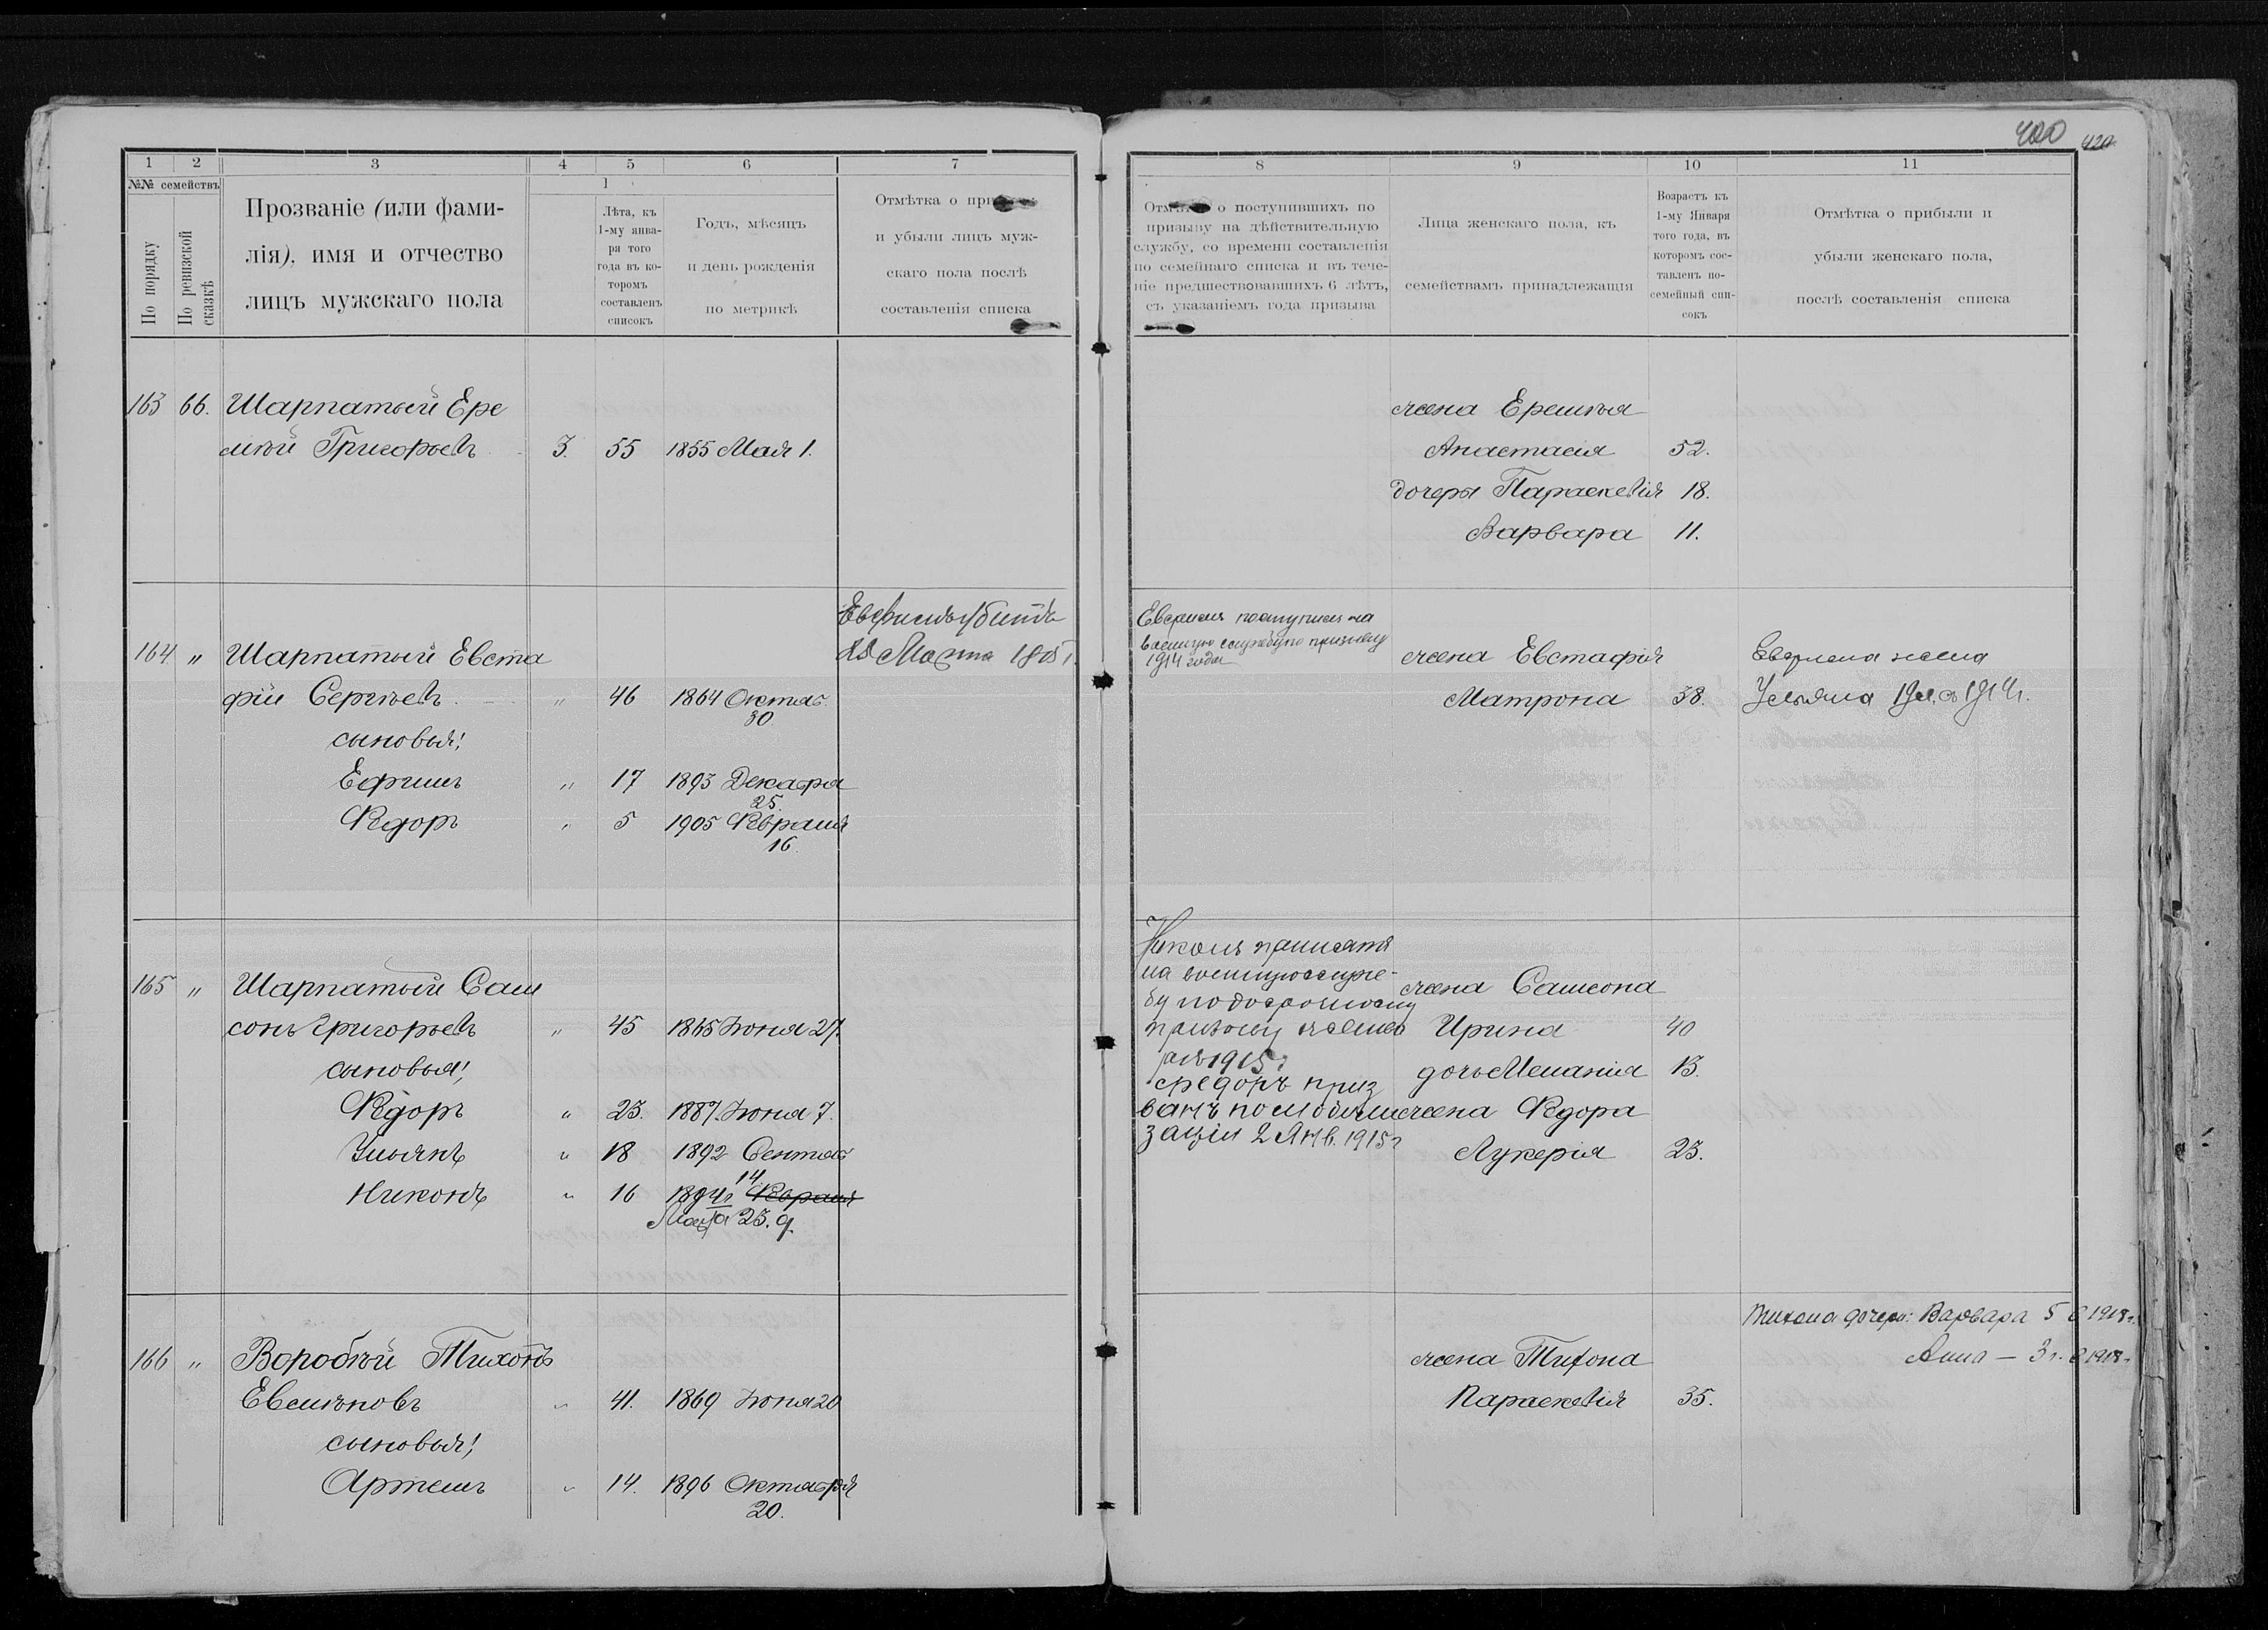 400 420
1 2 3 4 5 6 7
№№ семействъ
По порядку
По ревизской сказкѣ
Прозваніе (или фами-
лія), имя и отчество
лицъ мужскаго пола
Лѣта, къ
1-му янва-
ря того
года въ ко-
торомъ
составленъ
списокъ
Годъ, мѣсяцъ
и день рожденія
по метрикѣ
Отмѣтка о
и убыли лицъ муж-
скаго пола послѣ
составленія списка
163 66. Шарпатый Ере
мѣй Григорьевъ 3. 55 1855 Мая 1.
164 " Шарпатый Евста
фій Сергѣевъ " 46 1864 Октяб.
30
сыновья:
Ефимъ " 17 1893 Декабря
25.
Ѳедоръ " 5 1905 Февраля
16.
убитъ
Марта
165 " Шарпатый Сам
сонъ Григорьевъ " 45 1865 Іюня 27.
сыновья:
Ѳедоръ " 23. 1887 Іюня 7.
Ульянъ " 18 1892 Сентяб
14
Никонъ " 16 1894г Февраля
Марта 23. д.
166 " Воробѣй Тихонъ
Евсимовъ " 41. 1869 Іюня 20
сыновья:
Артемъ " 14. 1896 Октября
20.
8 9 10 11
Отмѣтка о поступившихъ по
призыву на дѣйствительную
службу, со времени составленія
по семейнаго списка и въ тече-
ніе предшествовавшихъ 6 лѣтъ,
съ указаніемъ года призыва
Лица женскаго пола, къ
семействамъ принадлежащія
Возрастъ къ
1-му Января
того года, въ
которомъ сос-
тавленъ по-
семейный спи-
сокъ
Отмѣтка о прибыли и
убыли женскаго пола,
послѣ составленія списка
жена Еремѣя
Анастасія 52.
дочеры Параскевія 18.
Варвара 11.
на
военную службу по призыву
1914 года
жена Евстафія
Матрона 38.
жена
Ульяна 19 л. съ 1914г.
Никонъ принятъ
на военную служ-
бу по досрочному
призыву
1915г
Федоръ приз
ванъ по мобили
заціи 2 Янв. 1915г
жена Самсона
Ирина 40
дочь Меланія 13.
жена Ѳедора
Лукерія 23.
Тихона дочери: Варвара 5 1918г.
Анна — 3 г. 1918г
жена Тихона
Параскевія 35.